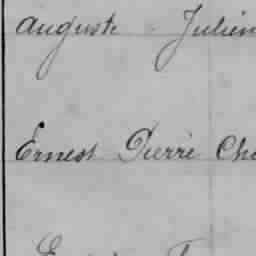 auguste Julien
Ernest Pierre